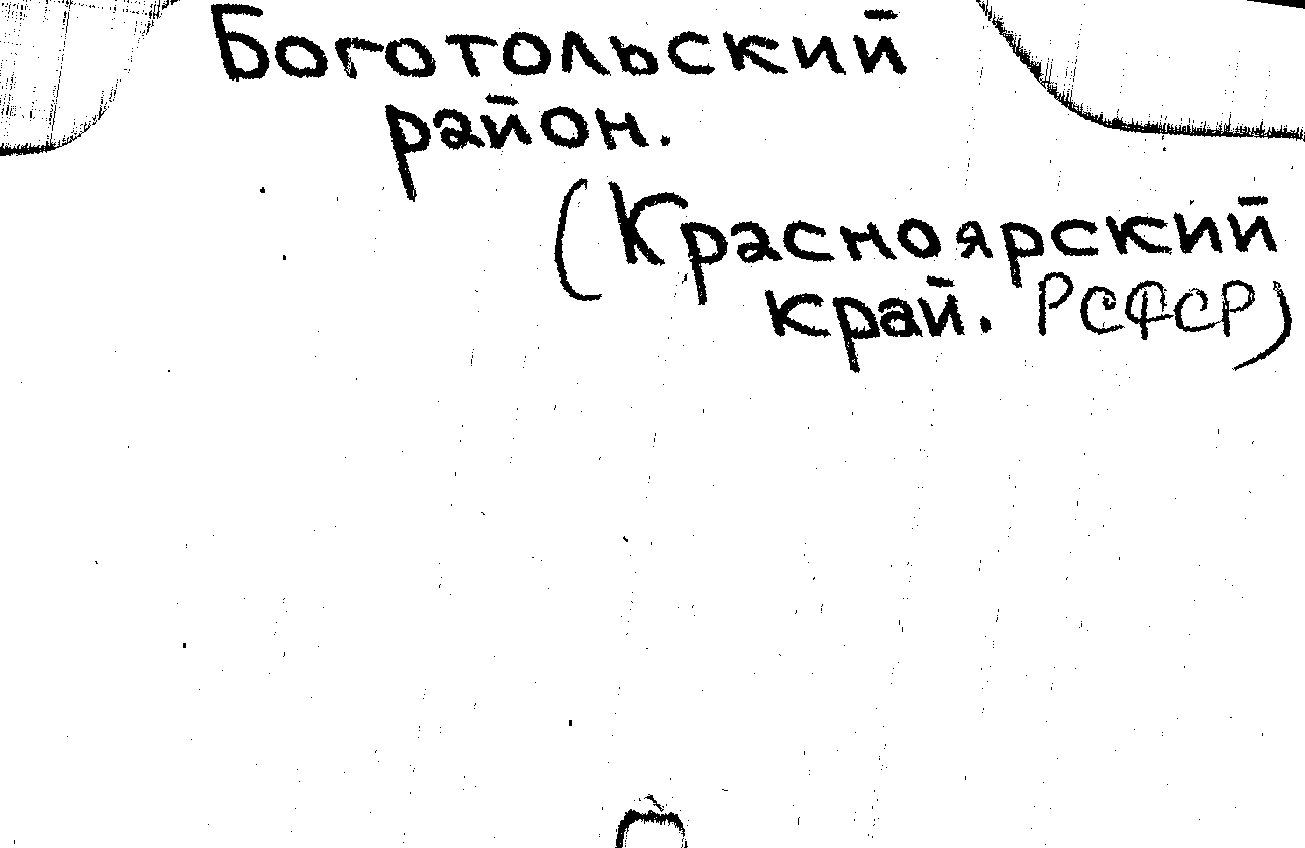 Боготольский
район.
(Красноярский
край. РСФСР)